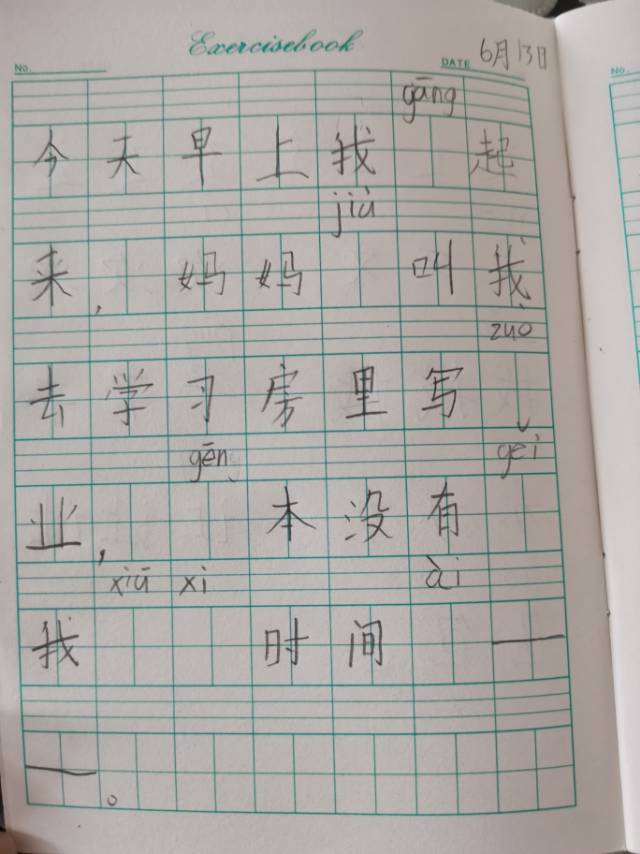 Exercisebook
No. DATE 6月13日
gāng
今天早上我 起
jiù
来, 妈妈 叫我
zuo
去学习房里写
gēn gěi
业, 本没有
xiū xi ài
我 时间 —
—。